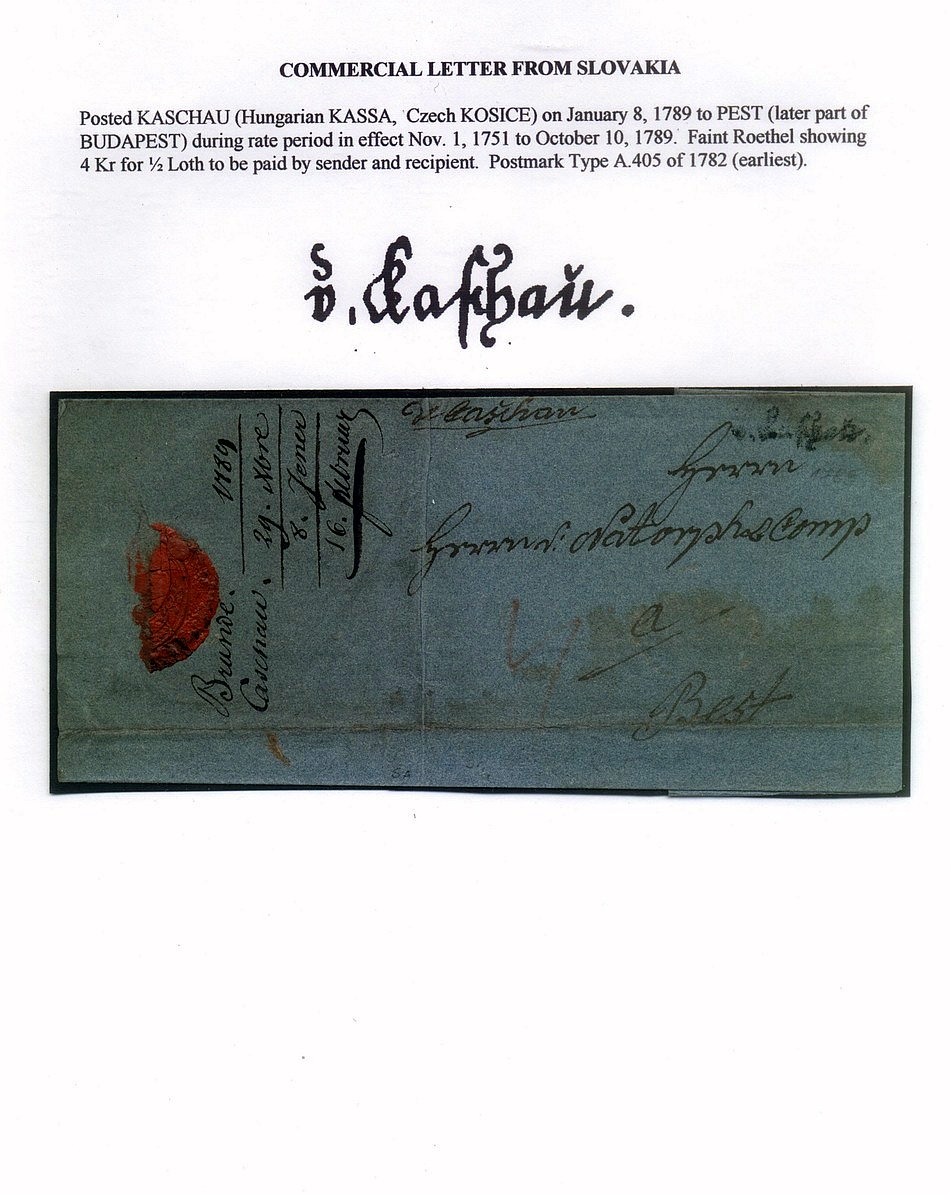 COMMERCIAL LETTER FROM SLOVAKIA
Posted KASCHAU (Hungarian KASSA, Czech KOSICE) on January 8, 1789 to PEST (later part of
BUDAPEST) during rate period in effect Nov. 1, 1751 to October 10, 1789. Faint Roethel showing
4 Kr for ½ Loth to be paid by sender and recipient. Postmark Type A.405 of 1782 (earliest).
v. Kaschau.
v Caschau
v. Kaschau.
Herrn
Herrn v. Natorp & Comp
a
Pest
4
1789
Caschau. 29. Novre
8. Jener
16. Februar